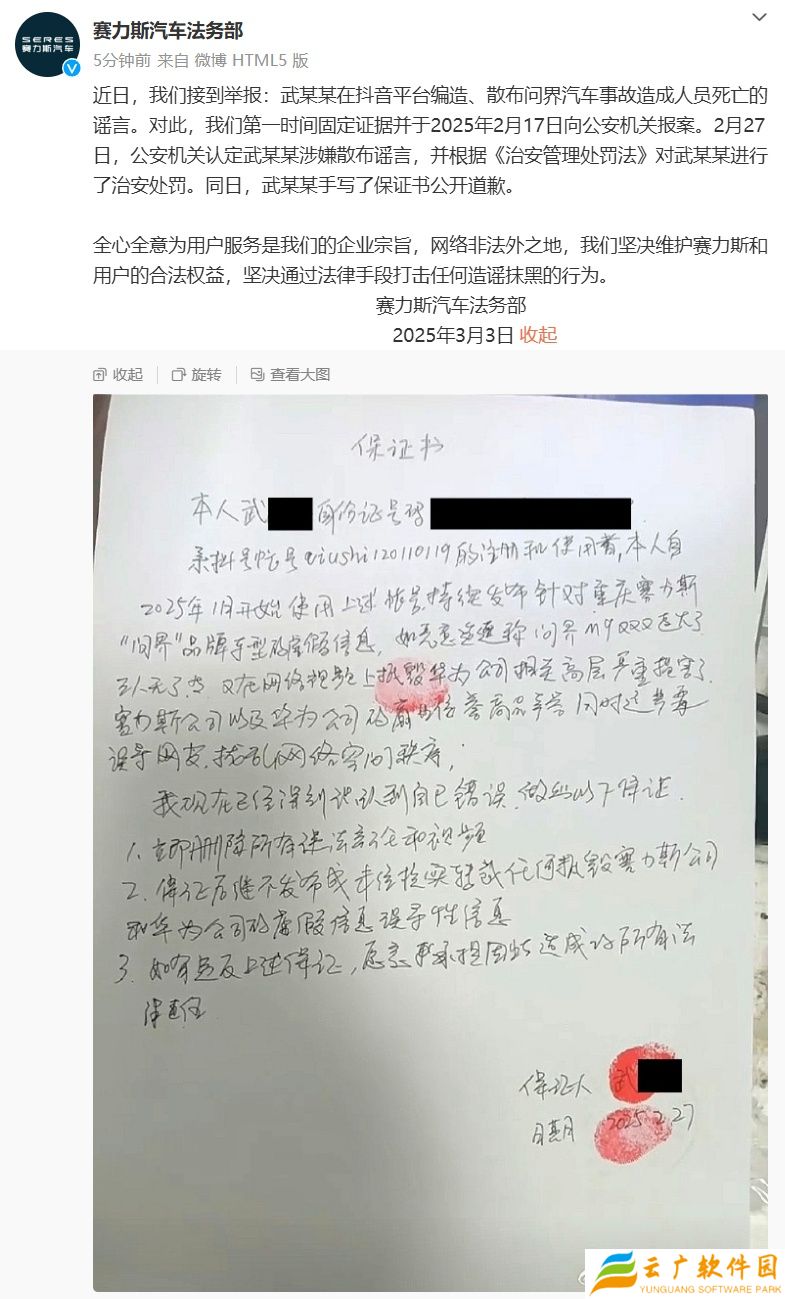 赛力斯汽车法务部
SERES
赛力斯汽车
5分钟前 来自 微博 HTML5 版
近日，我们接到举报：武某某在抖音平台编造、散布问界汽车事故造成人员死亡的
谣言。对此，我们第一时间固定证据并于2025年2月17日向公安机关报案。2月27
日，公安机关认定武某某涉嫌散布谣言，并根据《治安管理处罚法》对武某某进行
了治安处罚。同日，武某某手写了保证书公开道歉。
全心全意为用户服务是我们的企业宗旨，网络非法外之地，我们坚决维护赛力斯和
用户的合法权益，坚决通过法律手段打击任何造谣抹黑的行为。
赛力斯汽车法务部
2025年3月3日 收起
收起 旋转 查看大图
保证书
本人武 身份证号码
抖号帐号qiushi120110119的注册和使用者，本人自
2025年1月开始使用上述帐号持续发布针对重庆赛力斯
"问界"品牌车型的虚假信息，如恶意造谣称问界M9
三人死了 又在网络视频上抵毁华为公司相关高层严重损害了
赛力斯公司以及华为公司的商业信誉商品声誉同时
误导网友，扰乱网络空间秩序；
我现在已经深刻认识到自己错误，做出以下保证．
1、立即删除所有违法言论和视频
2．保证后继不发布或 任何抵毁赛力斯公司
和华为公司的虚假信息误导性信息
3．如有违反上述保证，愿意 承担因此造成的所有法
律责任
保证人 武
日期 2025.2.27
云广软件园
YUNGUANG SOFTWARE PARK